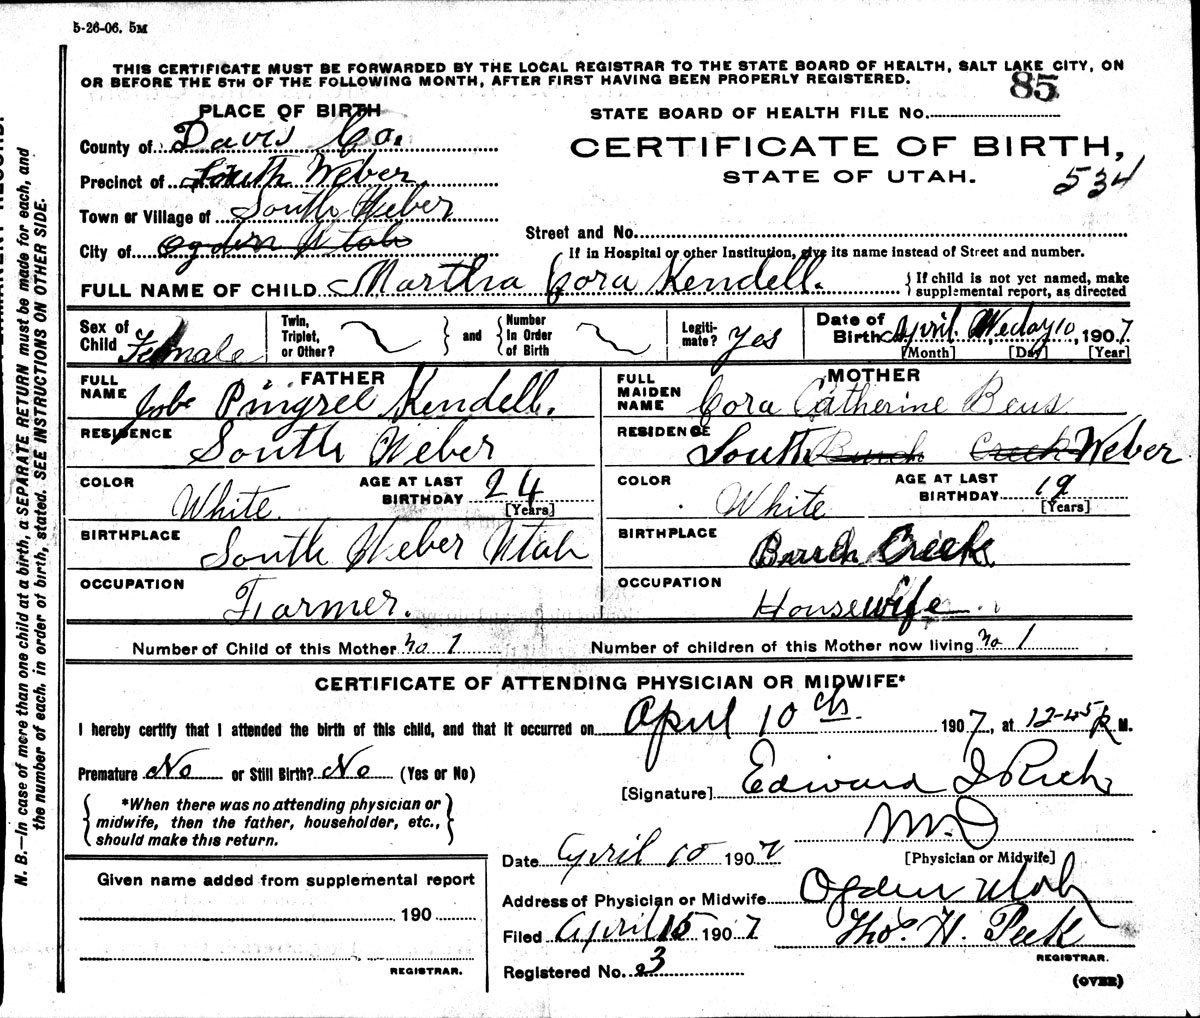 5-26-06. 5M
THIS CERTIFICATE MUST BE FORWARDED BY THE LOCAL REGISTRAR TO THE STATE BOARD OF HEALTH, SALT LAKE CITY, ON
OR BEFORE THE 5TH OF THE FOLLOWING MONTH, AFTER FIRST HAVING BEEN PROPERLY REGISTERED.
85
PLACE OF BIRTH
STATE BOARD OF HEALTH FILE NO.
County of Davis Co.
CERTIFICATE OF BIRTH,
Precinct of South Weber
STATE OF UTAH.
534
Town or Village of South Weber
City of Ogden Utah
Street and No.
If in Hospital or other Institution, give its name instead of Street and number.
FULL NAME OF CHILD Martha Cora Kendell. { If child is not yet named, make
supplemental report, as directed
Sex of Child Female
Twin, Triplet, or Other? } and { Number In Order of Birth
Legitimate? Yes
Date of Birth April Wed ay 10, 1907
[Month] [Day] [Year]
FATHER
FULL NAME Jobe Pingree Kendell.
RESIDENCE South Weber
COLOR White AGE AT LAST BIRTHDAY 24 [Years]
BIRTHPLACE South Weber Utah
OCCUPATION Farmer.
MOTHER
FULL MAIDEN NAME Cora Catherine Beus
RESIDENCE South Burch Creek Weber
COLOR White AGE AT LAST BIRTHDAY 19 [Years]
BIRTHPLACE Burch Creek
OCCUPATION Housewife
Number of Child of this Mother no 1 Number of children of this Mother now living no 1
CERTIFICATE OF ATTENDING PHYSICIAN OR MIDWIFE*
I hereby certify that I attended the birth of this child, and that it occurred on April 10th 1907, at 12-45 P M.
Premature No or Still Birth? No (Yes or No)
[Signature] Edward I Rich
M.D
[Physician or Midwife]
{ *When there was no attending physician or
midwife, then the father, householder, etc.,
should make this return. }
Date April 10 1907
Given name added from supplemental report
190
REGISTRAR.
Address of Physician or Midwife Ogden Utah
Filed April 15 1907 Thos. H. Peek
REGISTRAR.
Registered No. 3
(OVER)
N. B.—In case of more than one child at a birth, a SEPARATE RETURN must be made for each, and
the number of each, in order of birth, stated. SEE INSTRUCTIONS ON OTHER SIDE.